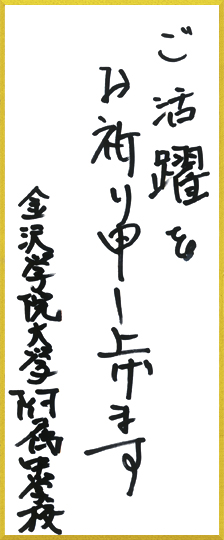 ご活躍を
お祈り申し上げます
金沢学院大学附属中学校